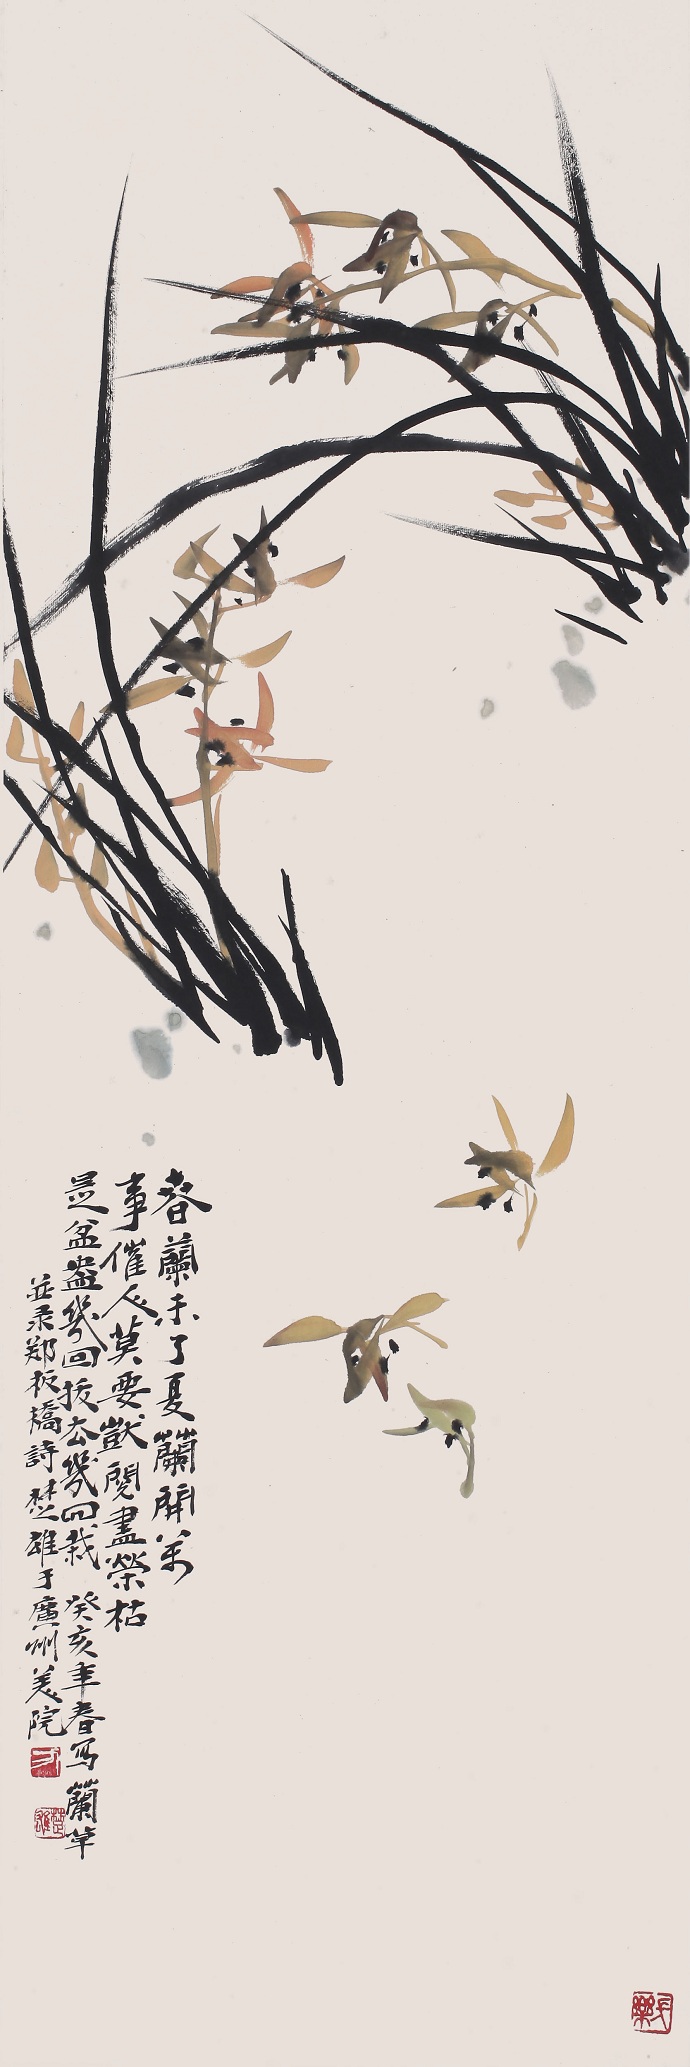 春蘭未了夏蘭開萬
事催人莫要獃閱盡榮枯
是盆盎幾回拔去幾回栽 癸亥年春写蘭草
並录郑板橋詩 楚雄于廣州美院
方
楚雄